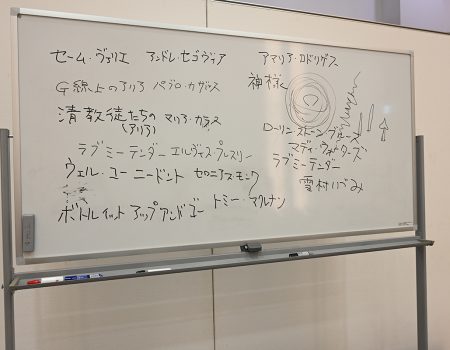 セーム・ヴァリエ アンドレ・セゴヴィア
G線上のアリア パブロ・カザルス
清教徒たちの マリア・カラス
(アリア)
ラブミーテンダー エルヴィス・プレスリー
ウェル・ユー・ニードント セロニアス・モンク
ボトルイットアップアンドゴー トミー・マクレナン
アマリア・ロドリゲス
神様
ローリン・ストーン ブルース
マディ・ウォーターズ
ラブミーテンダー
雪村いづみ